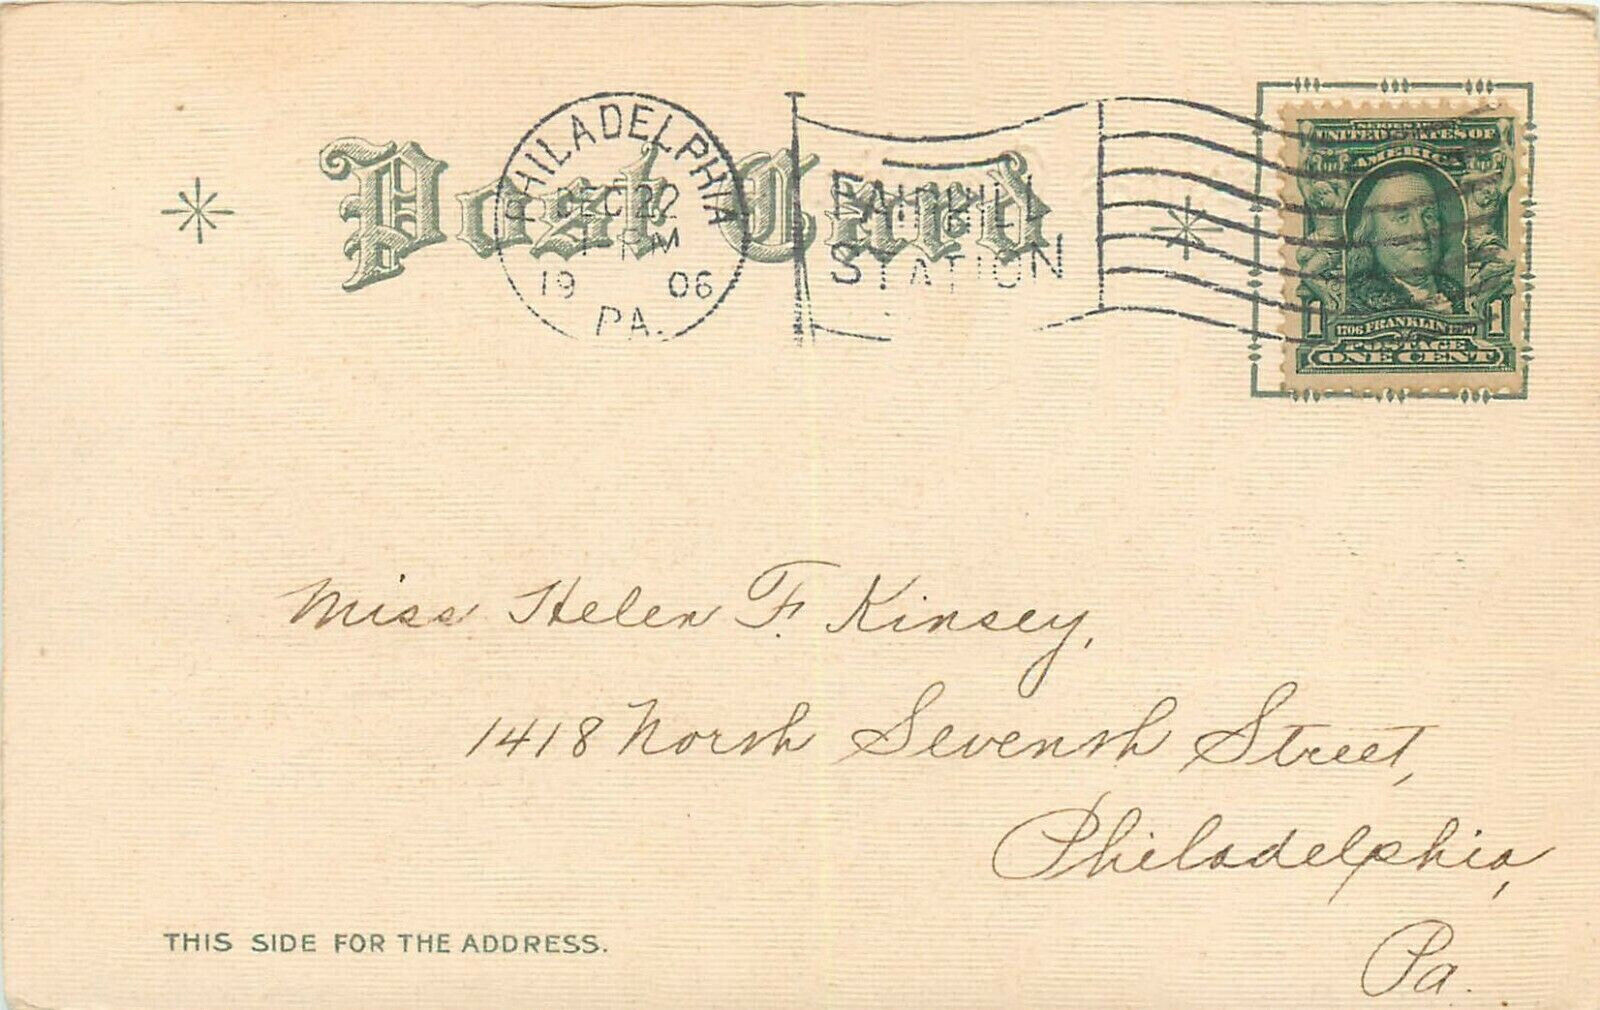 Post Card
PHILADELPHIA
DEC 22
1 PM
19 06
PA.
FAIRHILL
STATION
UNITED STATES OF
AMERICA
1 1706 FRANKLIN 1790 1
POSTAGE
ONE CENT
Miss Helen F. Kinsey,
1418 North Seventh Street,
Philadelphia,
Pa.
THIS SIDE FOR THE ADDRESS.